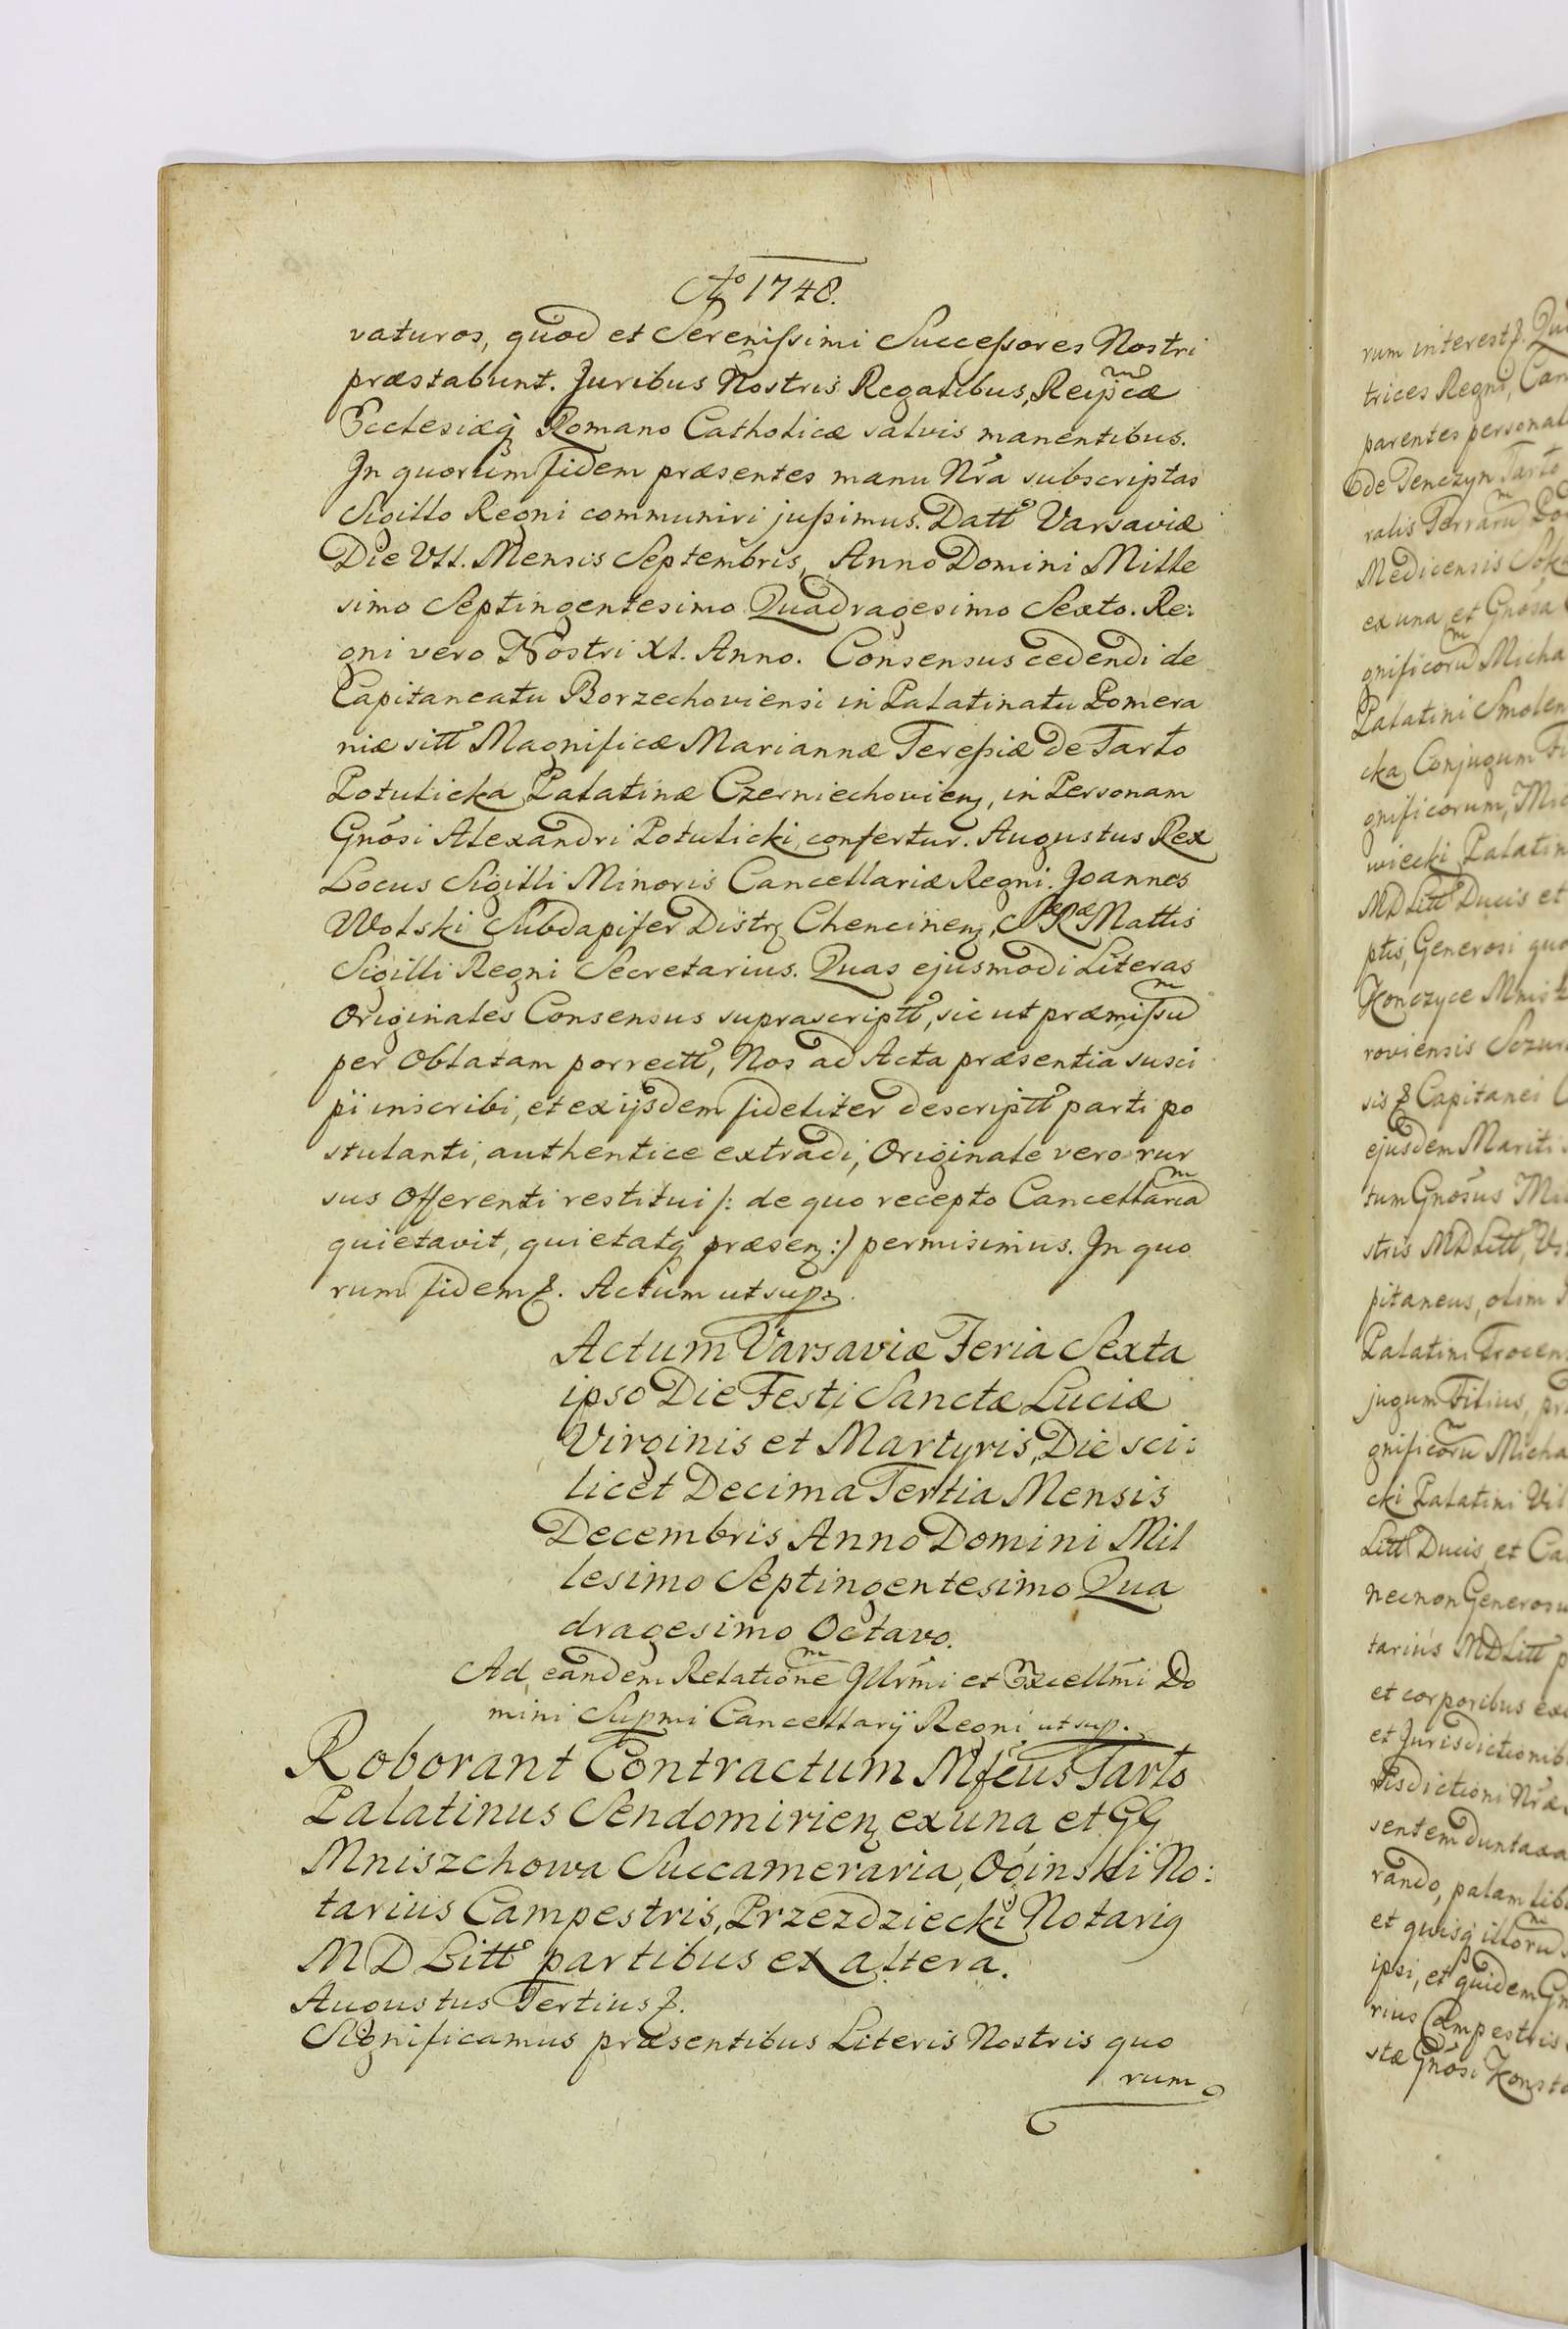 Aō 1748.
vaturos, quod et Serenissimi Successores Nostri
præstabunt. Juribus Nostris Regalibus, Reipcæ
Ecclesiæq Romano Catholicæ salvis manentibus.
In quorum fidem præsentes manu Nrā subscriptas
Sigillo Regni communiri jussimus. Datt° Varsaviæ
Die VII. Mensis Septembris, Anno Domini Mille
simo Septingentesimo Quadragesimo Sexto. Re:
gni vero Nostri XI. Anno. Consensus cedendi de
Capitaneatu Borzechoviensi in Palatinatu Pomera
niæ sitt° Magnificæ Mariannæ Teressiæ de Tarło
Potulicka Palatinæ Czerniechovien, in Personam
Gnōsi Alexandri Potulicki confertur. Augustus Rex
Locus Sigilli Minoris Cancellariæ Regni. Joannes
Wolski Subdapifer Distr Chencinen, SæRæ Mattis
Sigilli Regni Secretarius. Quas ejusmodi Literas
Originales Consensus suprascriptt°, sic ut præmissū
per Oblatam porrectt°, Nos ad Acta præsentia susci
pi inscribi, et ex ijsdem fideliter descriptt° parti po
stulanti, authentice extradi, Originale vero rur
sus Offerenti restitui /: de quo recepto Cancellariā
quietavit, quietatq præsen :/ permisimus. In quo
rum fidem &. Actum ut sup.
Actum Varsaviæ Feria Sexta
ipso Die Festi Sanctæ Luciæ
Virginis et Martyris, Die sci:
licet Decima Tertia Mensis
Decembris Anno Domini Mil
lesimo Septingentesimo Qua
dragesimo Octavo.
Ad eandem Relationē Jllrmi et Excellmi Do
mini Supmi Cancellarij Regni ut sup.
Roborant Contractum Mfcus Tarło
Palatinus Sendomirien ex una, et GG
Mniszchowa Succameraria, Oginski No:
tarius Campestris, Przezdziecki Notarig
MD Litt° partibus ex altera.
Augustus Tertius &.
Significamus præsentibus Literis Nostris quo
rum
rum interest &.
trices Regni,
parentes
de Tenczyn Tarło
ralis Terrarū
Medicensis
ex una et Gnōsa
gnificorū Micha
Palatini Smolen
cka Conjugum
gnificorum,
wiecki Palatin
MD Litt° Ducis et
ptis, Generosi quo
Konczyce
roviensis
sis & Capitanei
ejusdem Mariti
tum Gnōsus
stris MD Litt°,
pitaneus, olim
Palatini Trocen
jugum Filius,
gnificorū Micha
cki Palatini Vil
Litt° Ducis et Ca
necnon Generosu
tarius MD Litt°
et corporibus
et Jurisdictionib
risdictioni Nræ
sentem duntaxa
rando, palam lib
et quisq illorū
ipsi, et quidem
rius Campestris
stæ Gnōsi Konsta